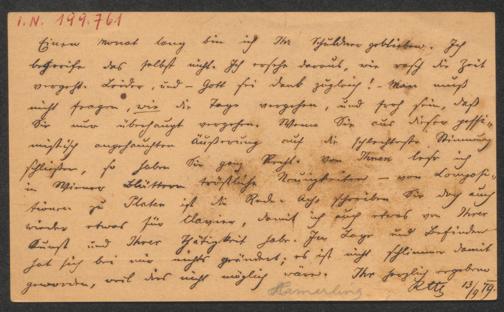 I.N. 199.761
Einen Monat lang bin ich Ihr Schuldner geblieben. Ich
begreife das selbst nicht. Ich ersehe daraus, wie rasch die Zeit
vergeht. Leider, und – Gott sei Dank zugleich! – Man muß
nicht fragen, wie die Tage vergehen, und froh sein, daß
Sie nur überhaupt vergehen. Wenn Sie aus dieser pessi-
mistisch angehauchten Äußerung auf die schlechteste Stimmung
schließen, so haben Sie ganz Recht. Von Ihnen lese ich
in Wiener Blättern tröstliche Neuigkeiten – von Composi-
tionen zu Platen ist die Rede. Ach, schreiben Sie doch auch
wieder etwas für Clavier, damit ich auch etwas von Ihrer
Kunst und Ihrer Thätigkeit habe. Ihr Lage und Befinden
hat sich bei mir nichts geändert; es ist nicht schlimmer damit
geworden, weil das nicht möglich wäre. Ihr herzlich ergebener
13/9 79.
Hamerling